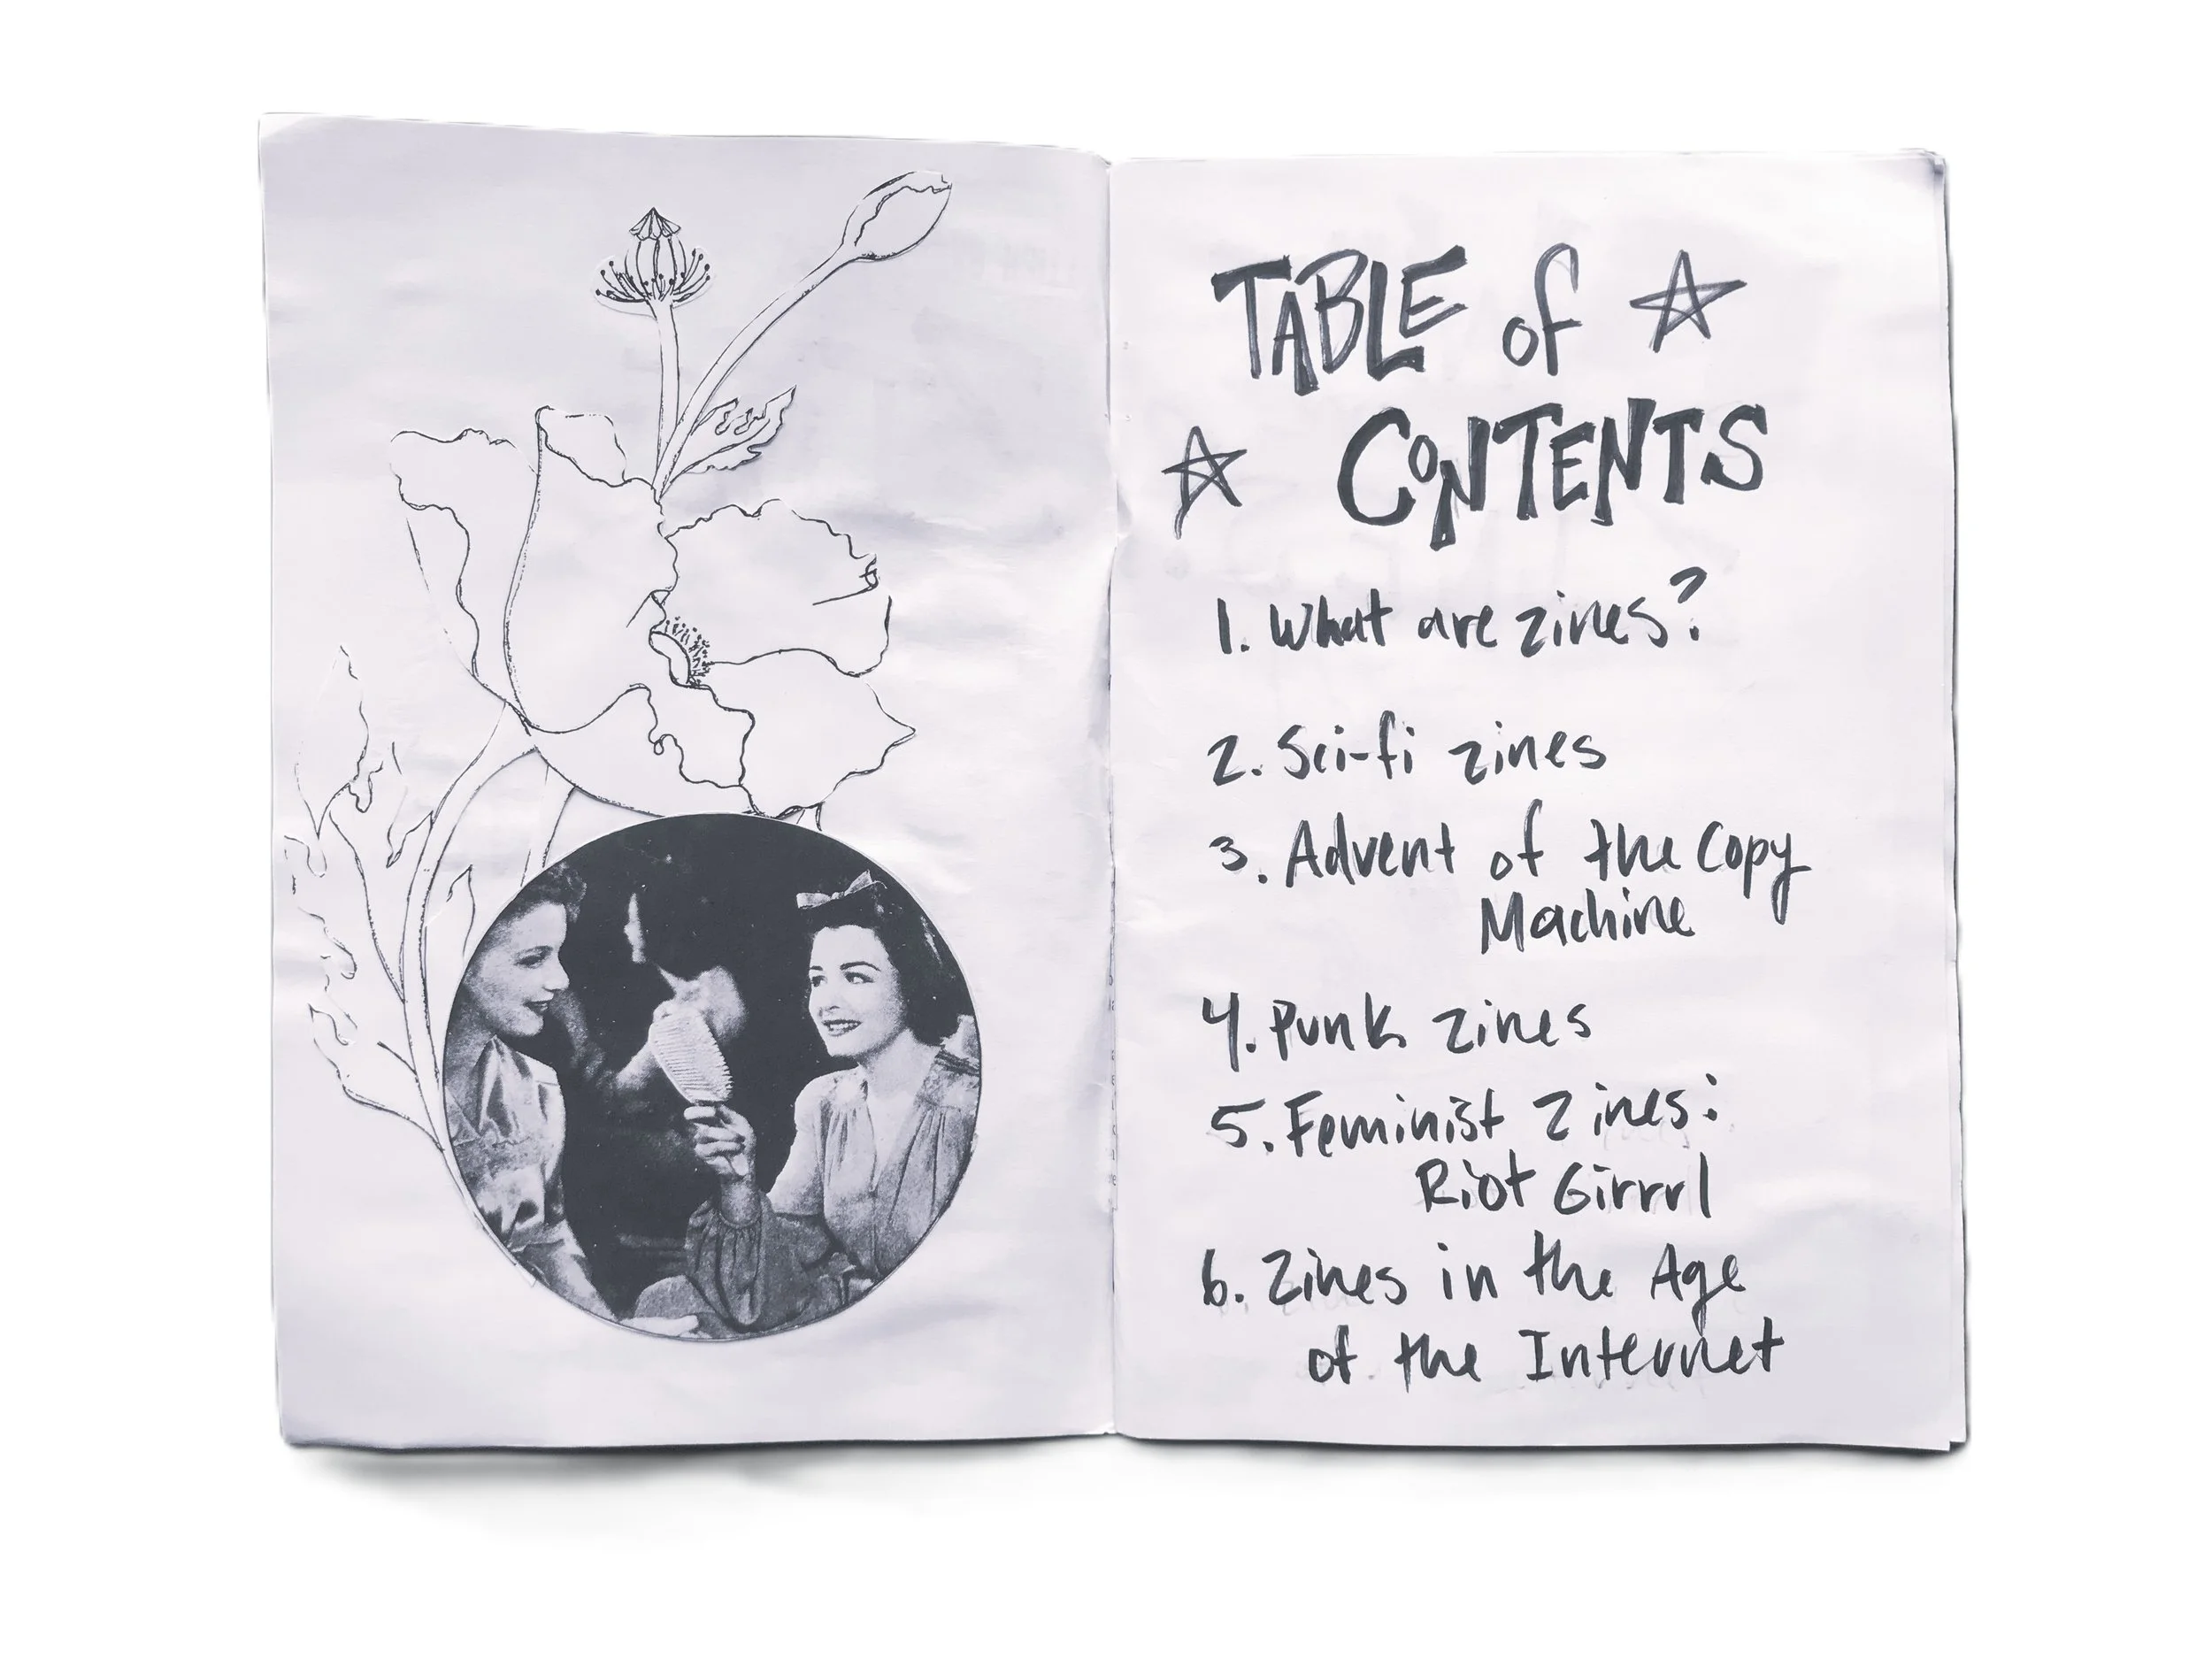 TABLE of
CONTENTS
1. What are zines?
2. Sci-fi zines
3. Advent of the Copy
Machine
4. Punk zines
5. Feminist Zines:
Riot Girrrl
6. Zines in the Age
of the Internet